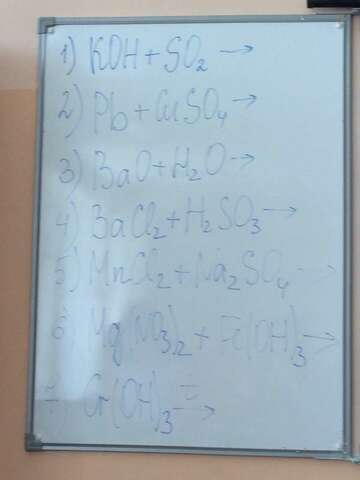 1) KOH + SO₂ →
2) Pb + CuSO₄ →
3) BaO + H₂O →
4) BaCl₂ + H₂SO₃ →
5) MnCl₂ + Na₂SO₄ →
6) Mg(NO₃)₂ + Fe(OH)₃ →
7) Cr(OH)₃ t→